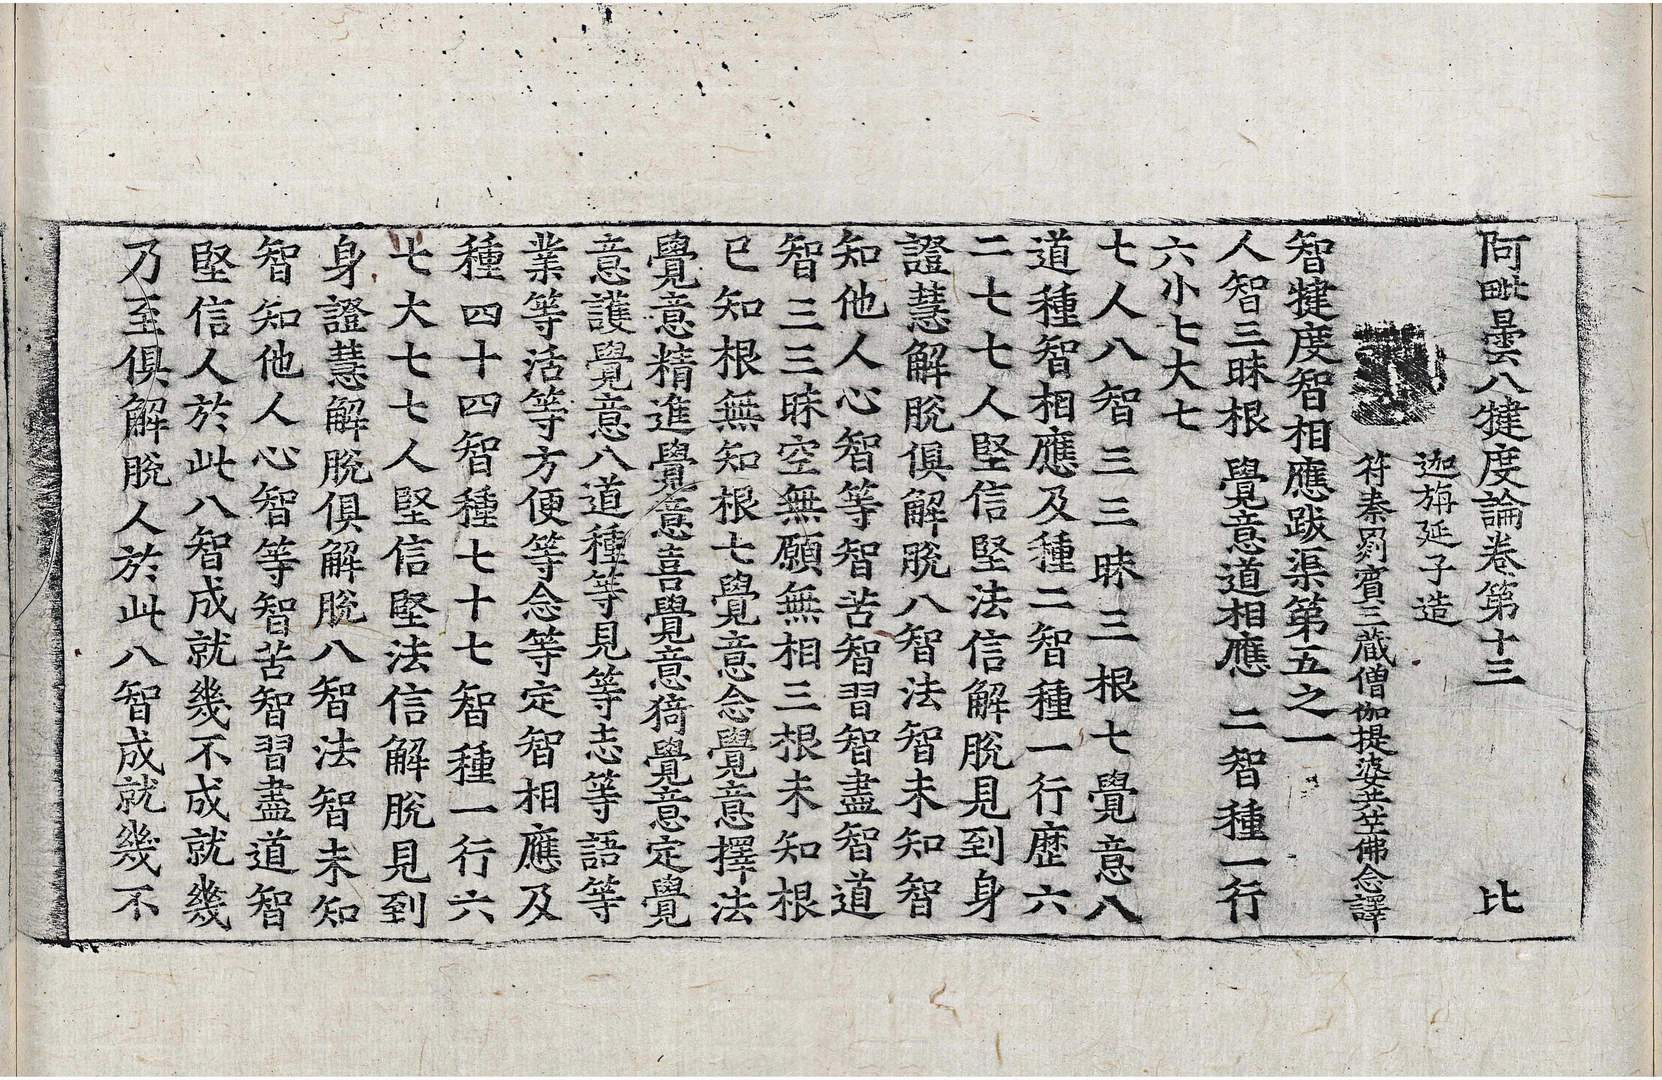 阿毗曇八犍度論卷第十三 比
迦旃延子造
苻秦罽賓三藏僧伽提婆共竺佛念譯
智犍度智相應跋渠第五之一
人智三昧根 覺意道相應 二智種一行
六小七大七
七人八智三三昧三根七覺意八
道種智相應及種二智種一行歷六
二七七人堅信堅法信解脫見到身
證慧解脫俱解脫八智法智未知智
知他人心智等智苦智習智盡智道
智三三昧空無願無相三根未知根
已知根無知根七覺意念覺意擇法
覺意精進覺意喜覺意猗覺意定覺
意護覺意八道種等見等志等語等
業等活等方便等念等定智相應及
種四十四智種七十七智種一行六
七大七七人堅信堅法信解脫見到
身證慧解脫俱解脫八智法智未知
智知他人心智等智苦智習盡道智
堅信人於此八智成就幾不成就幾
乃至俱解脫人於此八智成就幾不